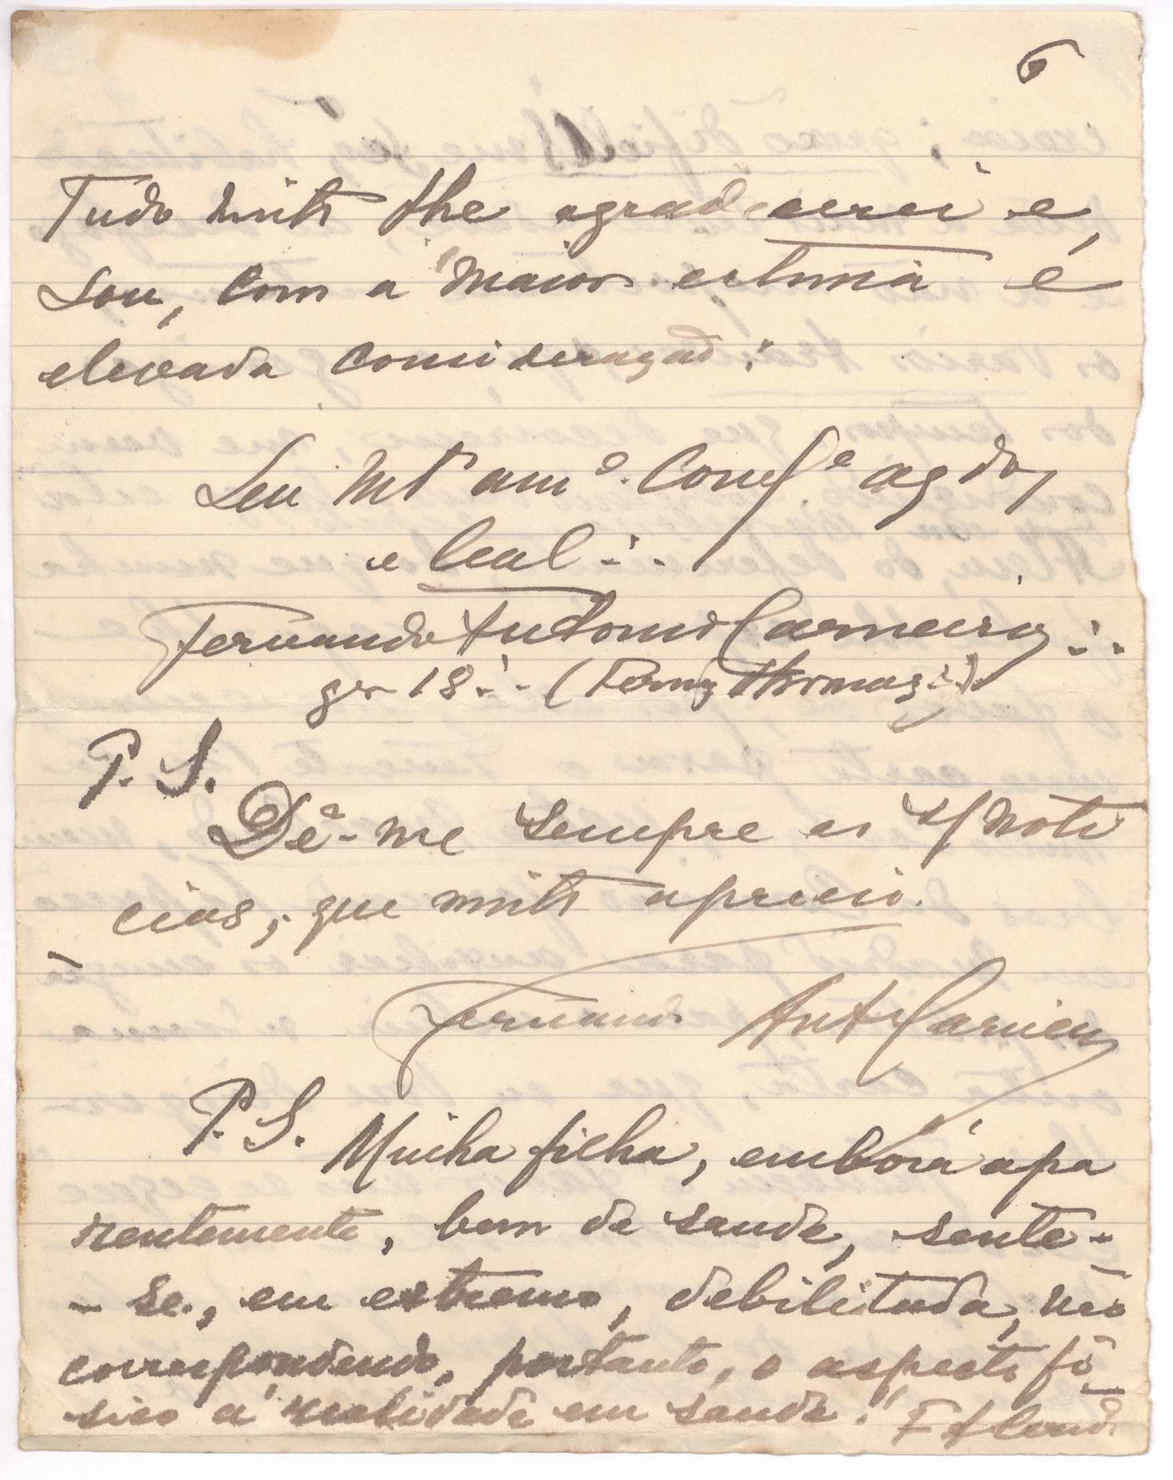 6
Tudo muito lhe agradecerei e
sou, com a maior estima e
elevada consideração:
Seu Mtº amº. Confe agdo,
e leal ∴
Fernando Antonio Carneiro ∴
gr 18 ∴ (
P. S.
Dê-me sempre as s/ noti
cias, que muito aprecio.
Fernando Ant Carneiro
P. S. Minha filha, embora apa
rentemente, bem de saude, sente-
- se, em extremo, debilitada, não
correspondendo, portanto, o aspecto fi-
sico á realidade em saude.